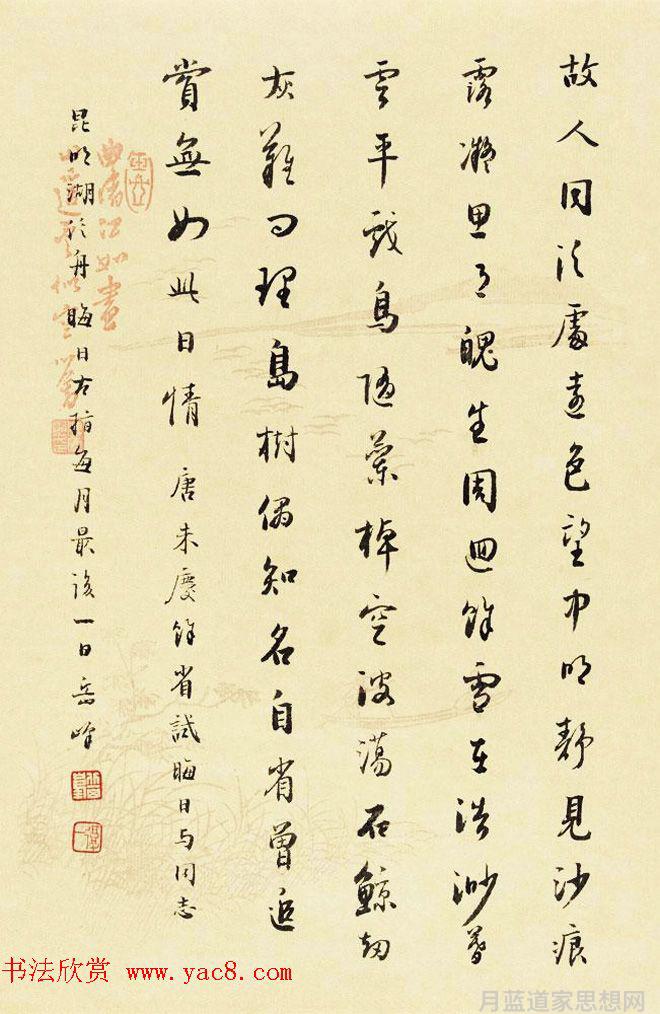 故人同泛處遠色望中明静見沙痕
露凝思月魄生周迴餘雪在浩渺暮
雲平戲鳥隨蘭棹空波蕩石鯨劫
灰難問理島樹偶知名自省曾追
賞無如此日情 唐朱慶餘省試晦日与同志
昆明湖泛舟 晦日古指每月最後一日 岳峰
书法欣赏 www.yac8.com
月蓝道家思想网